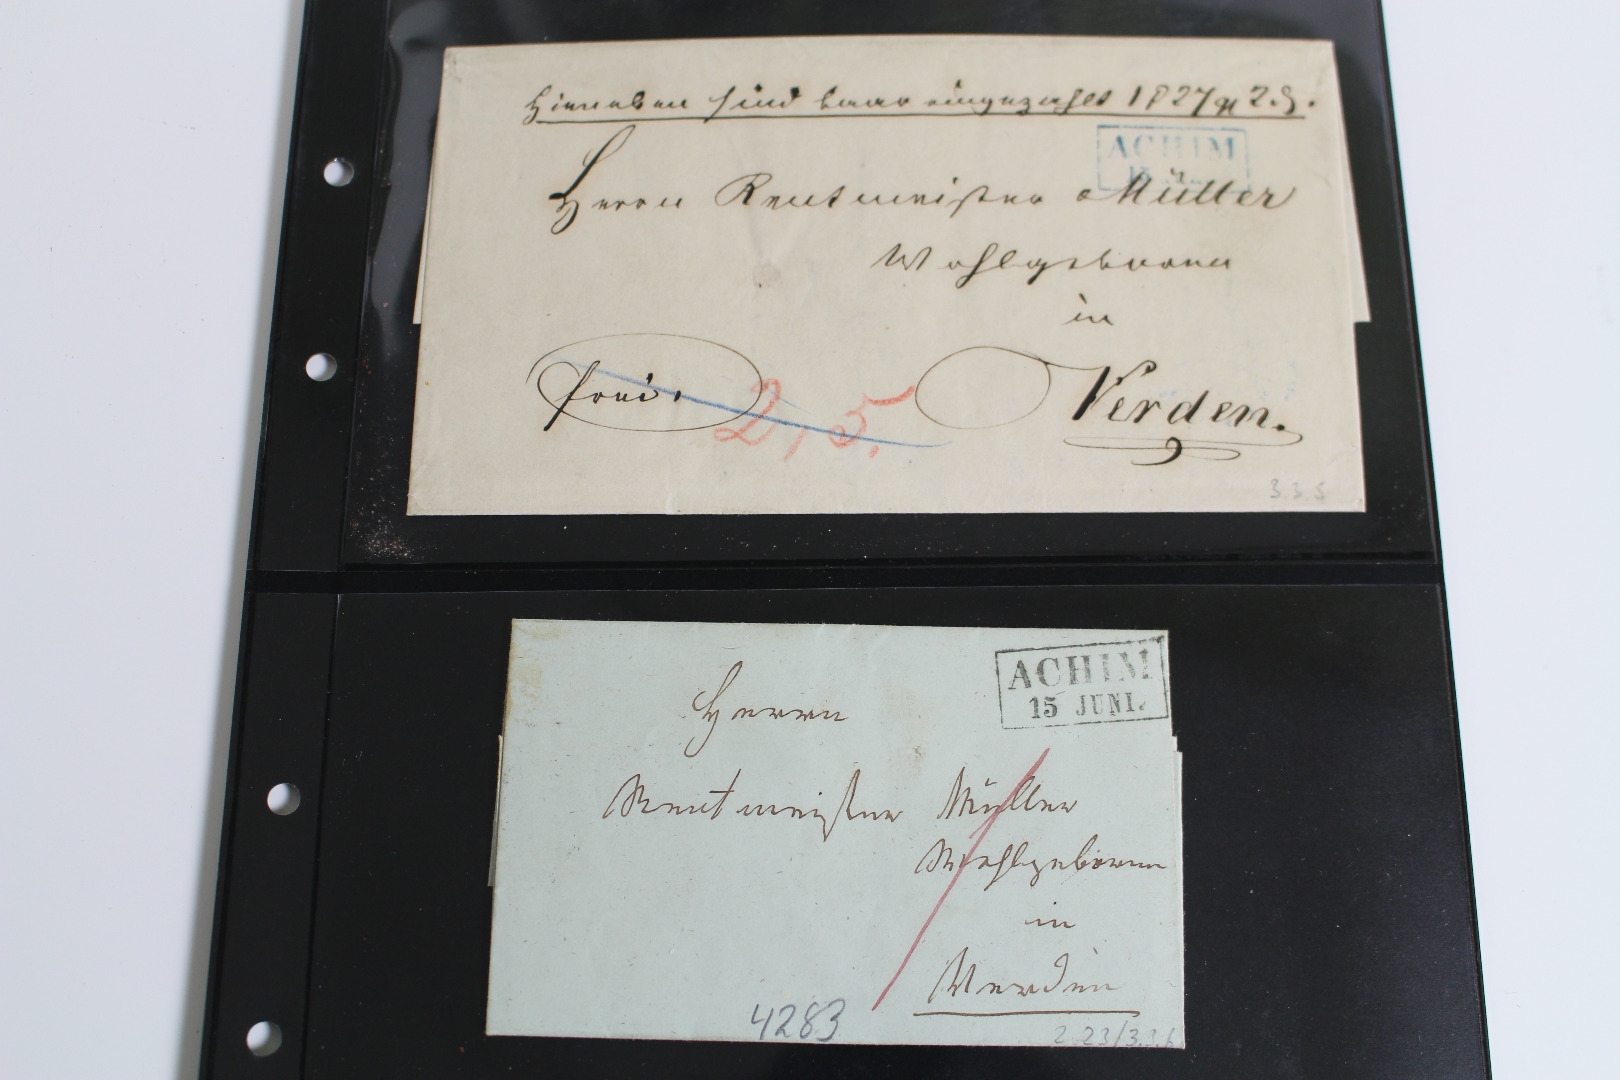 Hierneben sind baar eingezahlt 1827 2
ACHIM
Herrn Rentmeister Müller
Wohlgeboren
in
frei.
2,5.
Verden.
3.3.5
ACHIM
15 JUNI.
Herrn
Rentmeister Müller
Wohlgeboren
in
Verden
4283
2.23/3.3.6